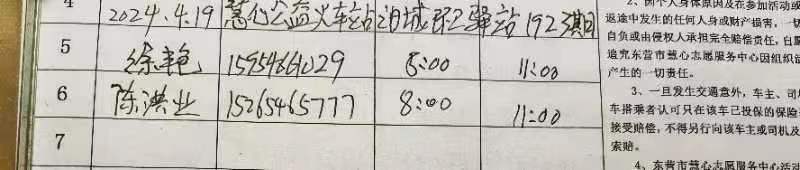 4
2024.4.19 慧心公益火车站泊城环卫驿站192期
5 徐艳 15954661029 8:00 11:00
6 陈洪业 15265465777 8:00 11:00
7
2、因个人身体原因及在参加活动或
返途中发生的任何人身或财产损害,一切
自负或由侵权人承担完全赔偿责任,自愿
追究东营市慧心志愿服务中心因组织活
产生的一切责任。
3、一旦发生交通意外,车主、司
车搭乘者认可只在该车已投保的保险
接受赔偿,不得另行向该车主或司机及
索赔。
4、东营市慧心志愿服务中心活动